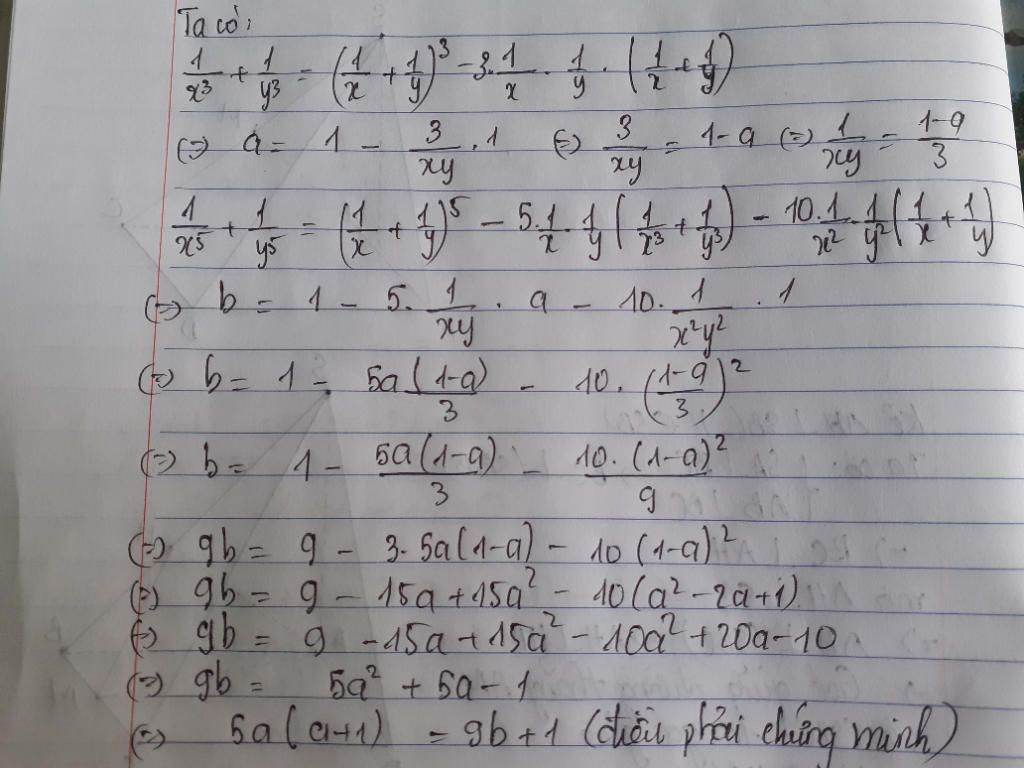 Ta có:
1/x³ + 1/y³ = (1/x + 1/y)³ - 3·1/x · 1/y · (1/x + 1/y)
(=) a = 1 - 3/xy · 1 (=) 3/xy = 1-a (=) 1/xy = (1-a)/3
1/x⁵ + 1/y⁵ = (1/x + 1/y)⁵ - 5·1/x · 1/y (1/x³ + 1/y³) - 10·1/x² · 1/y² (1/x + 1/y)
(=) b = 1 - 5· 1/xy · a - 10· 1/x²y² · 1
(=) b = 1 - 5a(1-a)/3 - 10· ((1-a)/3)²
(=) b = 1 - 5a(1-a)/3 - 10·(1-a)²/9
(=) 9b = 9 - 3·5a(1-a) - 10(1-a)²
(=) 9b = 9 - 15a + 15a² - 10(a² - 2a + 1)
(=) 9b = 9 - 15a + 15a² - 10a² + 20a - 10
(=) 9b = 5a² + 5a - 1
(=) 5a(a+1) = 9b + 1 (điều phải chứng minh)